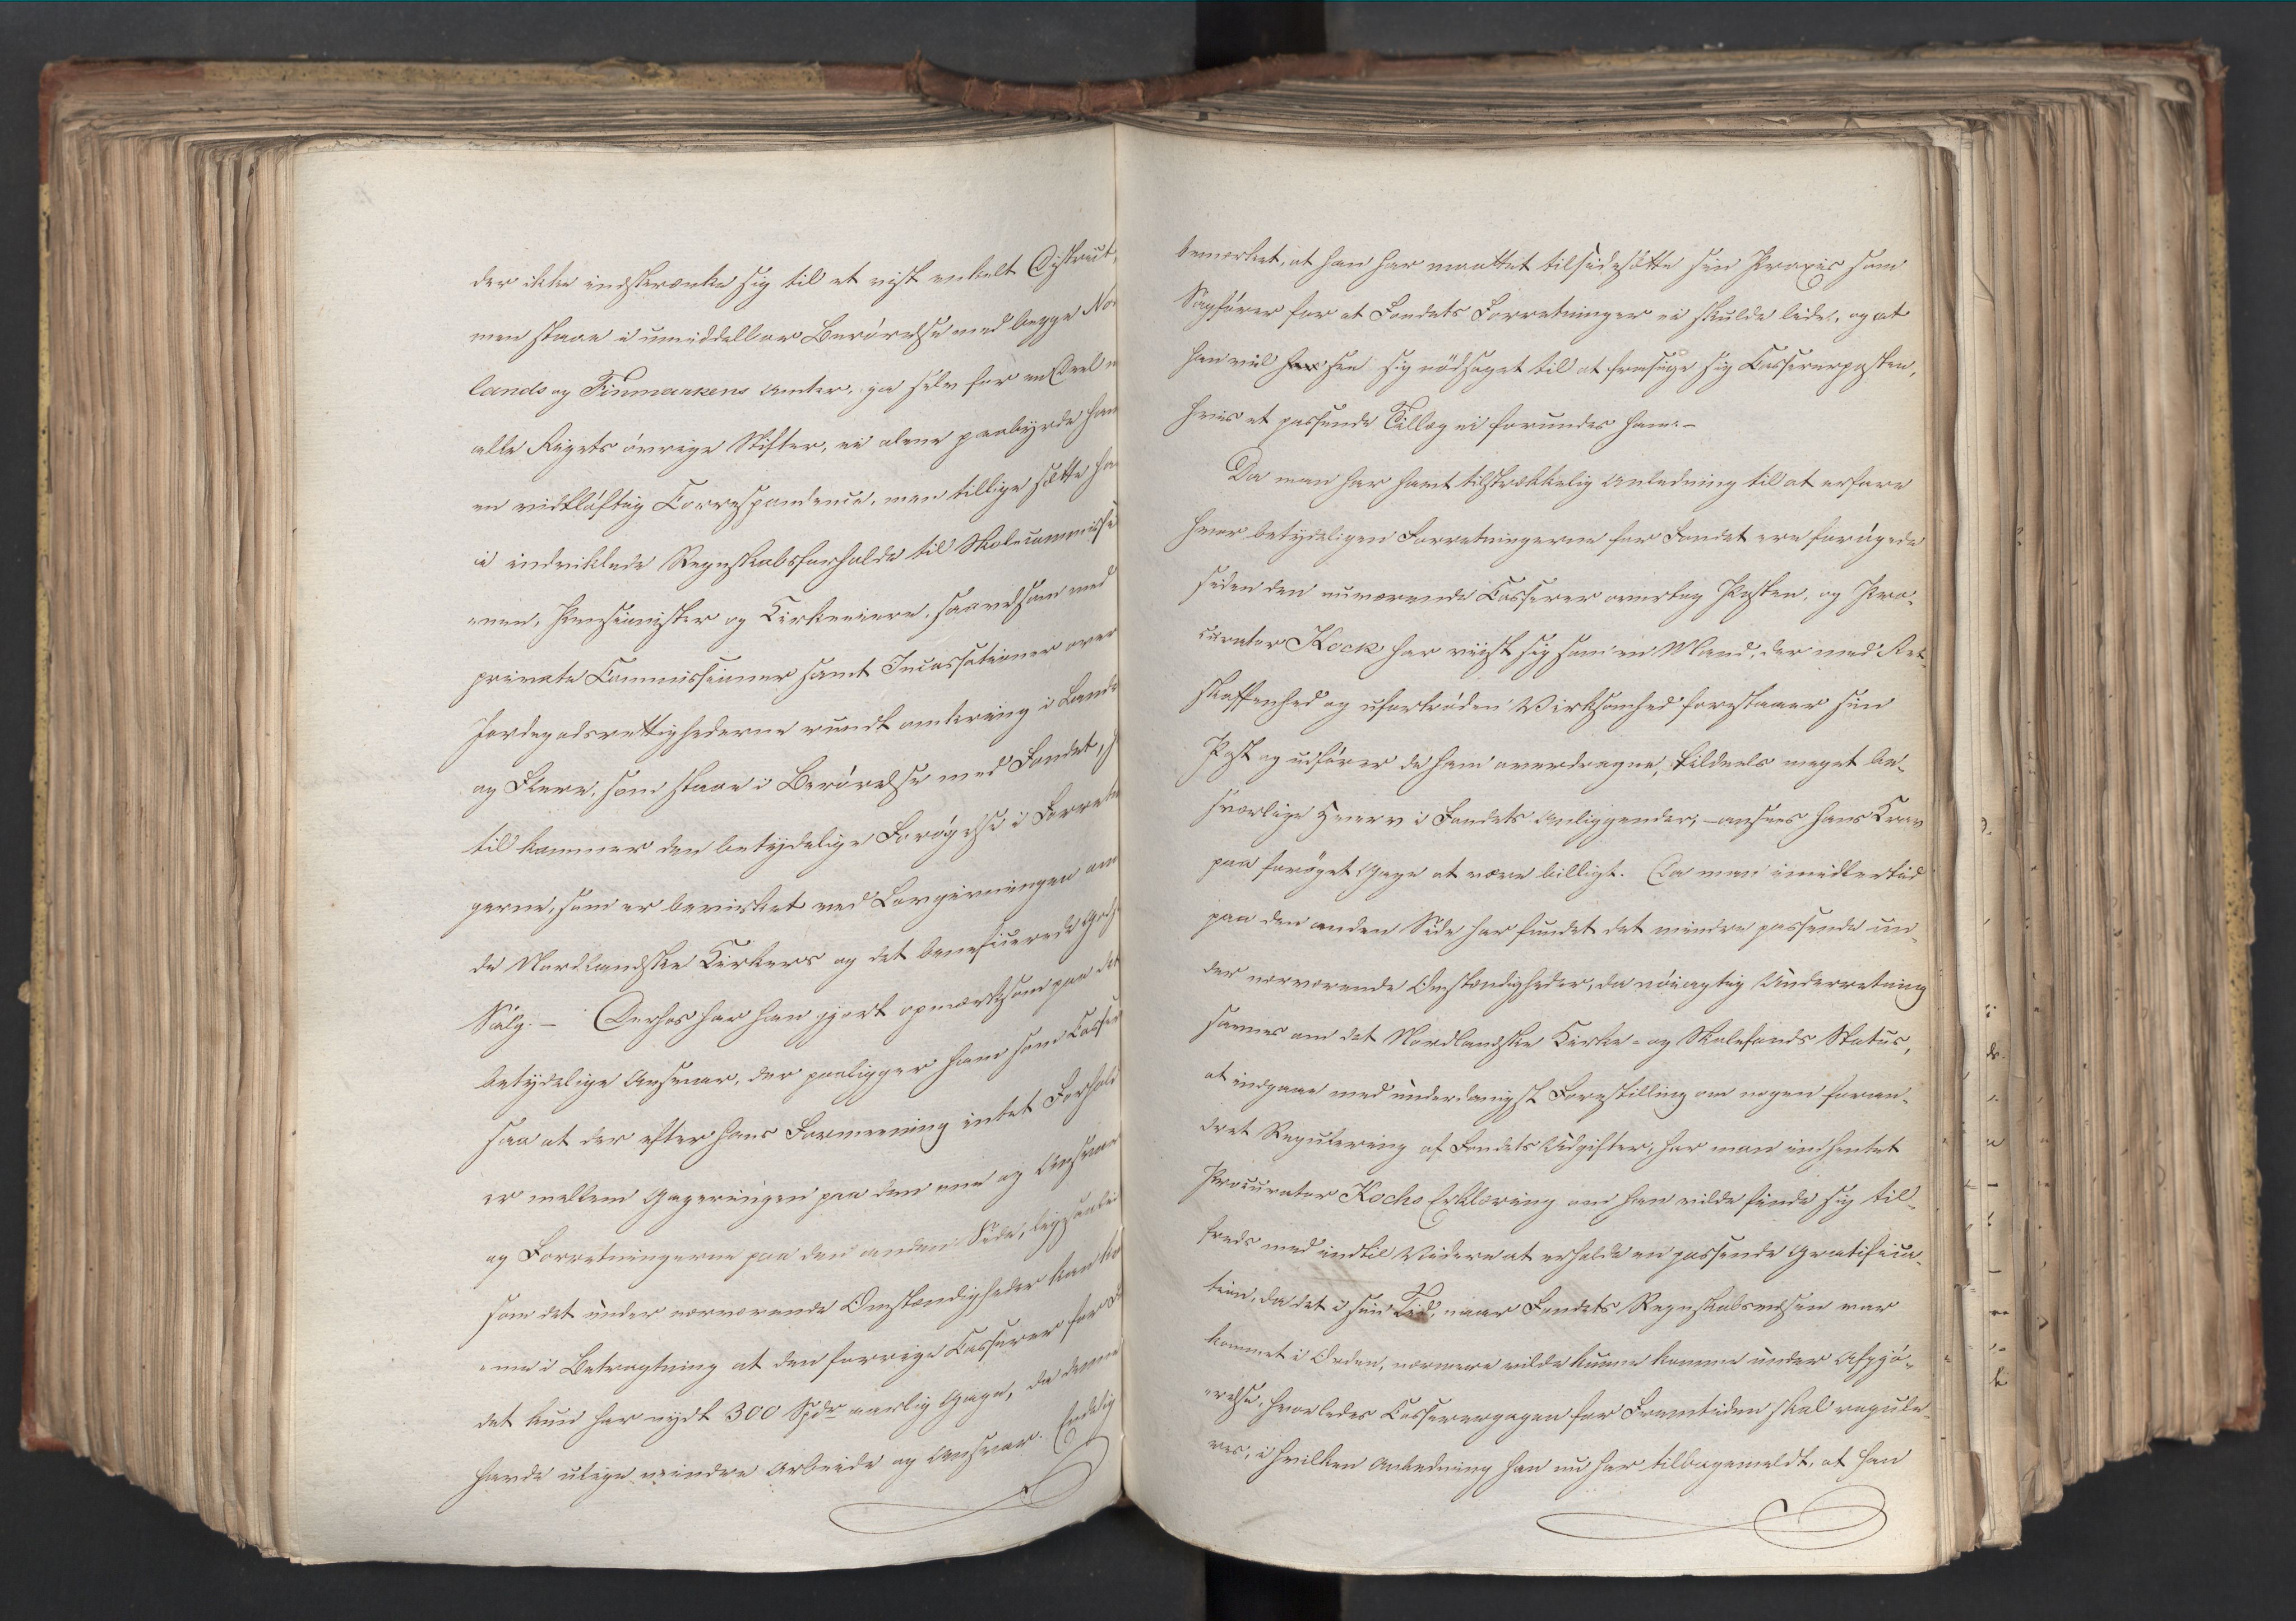 der ikke indskrænke sig til et vist enkelt District,
men staae i umiddelbar Berørelse med begge Nor
lands og Finmarkens Amter, ja selv for en Deel m
alle Rigets øvrige Stifter, ei alene paabyrde ham
en vidtløftig Correspondence, men tillige sætte ha
i indviklede Regnskabsforholde til Skolecommissi
onen, Pensionister og Kirkeeiere, saavelsom med
private Commissioner samt Incassationer over
Jordegodsrettighederne rundt omkring i Lande
og Flere, som staae i Berørelse med Fondet, h
til kommer den betydelige Forøgelse i Forretn
gerne, som er bevirket ved Lovgivningen om
de Nordlandske Kirkers og det beneficerede Gods
Salg. — Derhos har han gjort opmærksom paa det
betydelige Ansvar, der paaligger ham som Casser
saa at der efter hans Formeening intet Forhold
er mellem Gageringen paa den ene og Ansvar
og Forretningerne paa den anden Side, ligesaale
som det under nærværende Omstændigheder kan ko
me i Betragtning at den forrige Casserer for
det kun har nydt 300 Spdr aarlig Gage, da denne
havde ulige mindre Arbeide og Ansvar. Endelig
bemærket, at han har maattet tilsidesætte sin Praxis som
Sagfører for at Fondets Forretninger ei skulde lide, og at
han vil see sig nødsaget til at frasige sig Cassererposten,
hvis et passende Tillæg ei forundes ham. —
Da man har havt tilstrækkelig Anledning til at erfare
hvor betydeligen Forretningerne for Fondet ere forøgede
siden den nuværende Casserer overtog Posten, og Pro-
curator Kock har viist sig som en Mand, der med Ret-
skaffenhed og ufortrøden Virksomhed forestaaer sin
Post og udfører de ham overdragne, tildeels meget be-
sværlige Hverv i Fondets Anliggender, — ansees hans Krav
paa forøget Gage at være billigt. Da man imidlertid
paa den anden Side har fundet det mindre passende un-
der nærværende Omstændigheder, da nøiagtig Underretning
savnes om det Nordlandske Kirke- og Skolefonds Status,
at indgaae med underdanigst Forestilling om nogen foran-
dret Regulering af Fondets Udgifter, har man indhentet
Procurator Kochs Erklæring om han vilde finde sig til-
freds med indtil Videre at erholde en passende Gratifica-
tion, da det i sin Tid, naar Fondets Regnskabsvæsen var
kommet i Orden, nærmere vilde kunne komme under Afgjø-
relse, hvorledes Casserergagen for Fremtiden skal regule-
res, i hvilken Anledning han nu har tilbagemeldt, at han